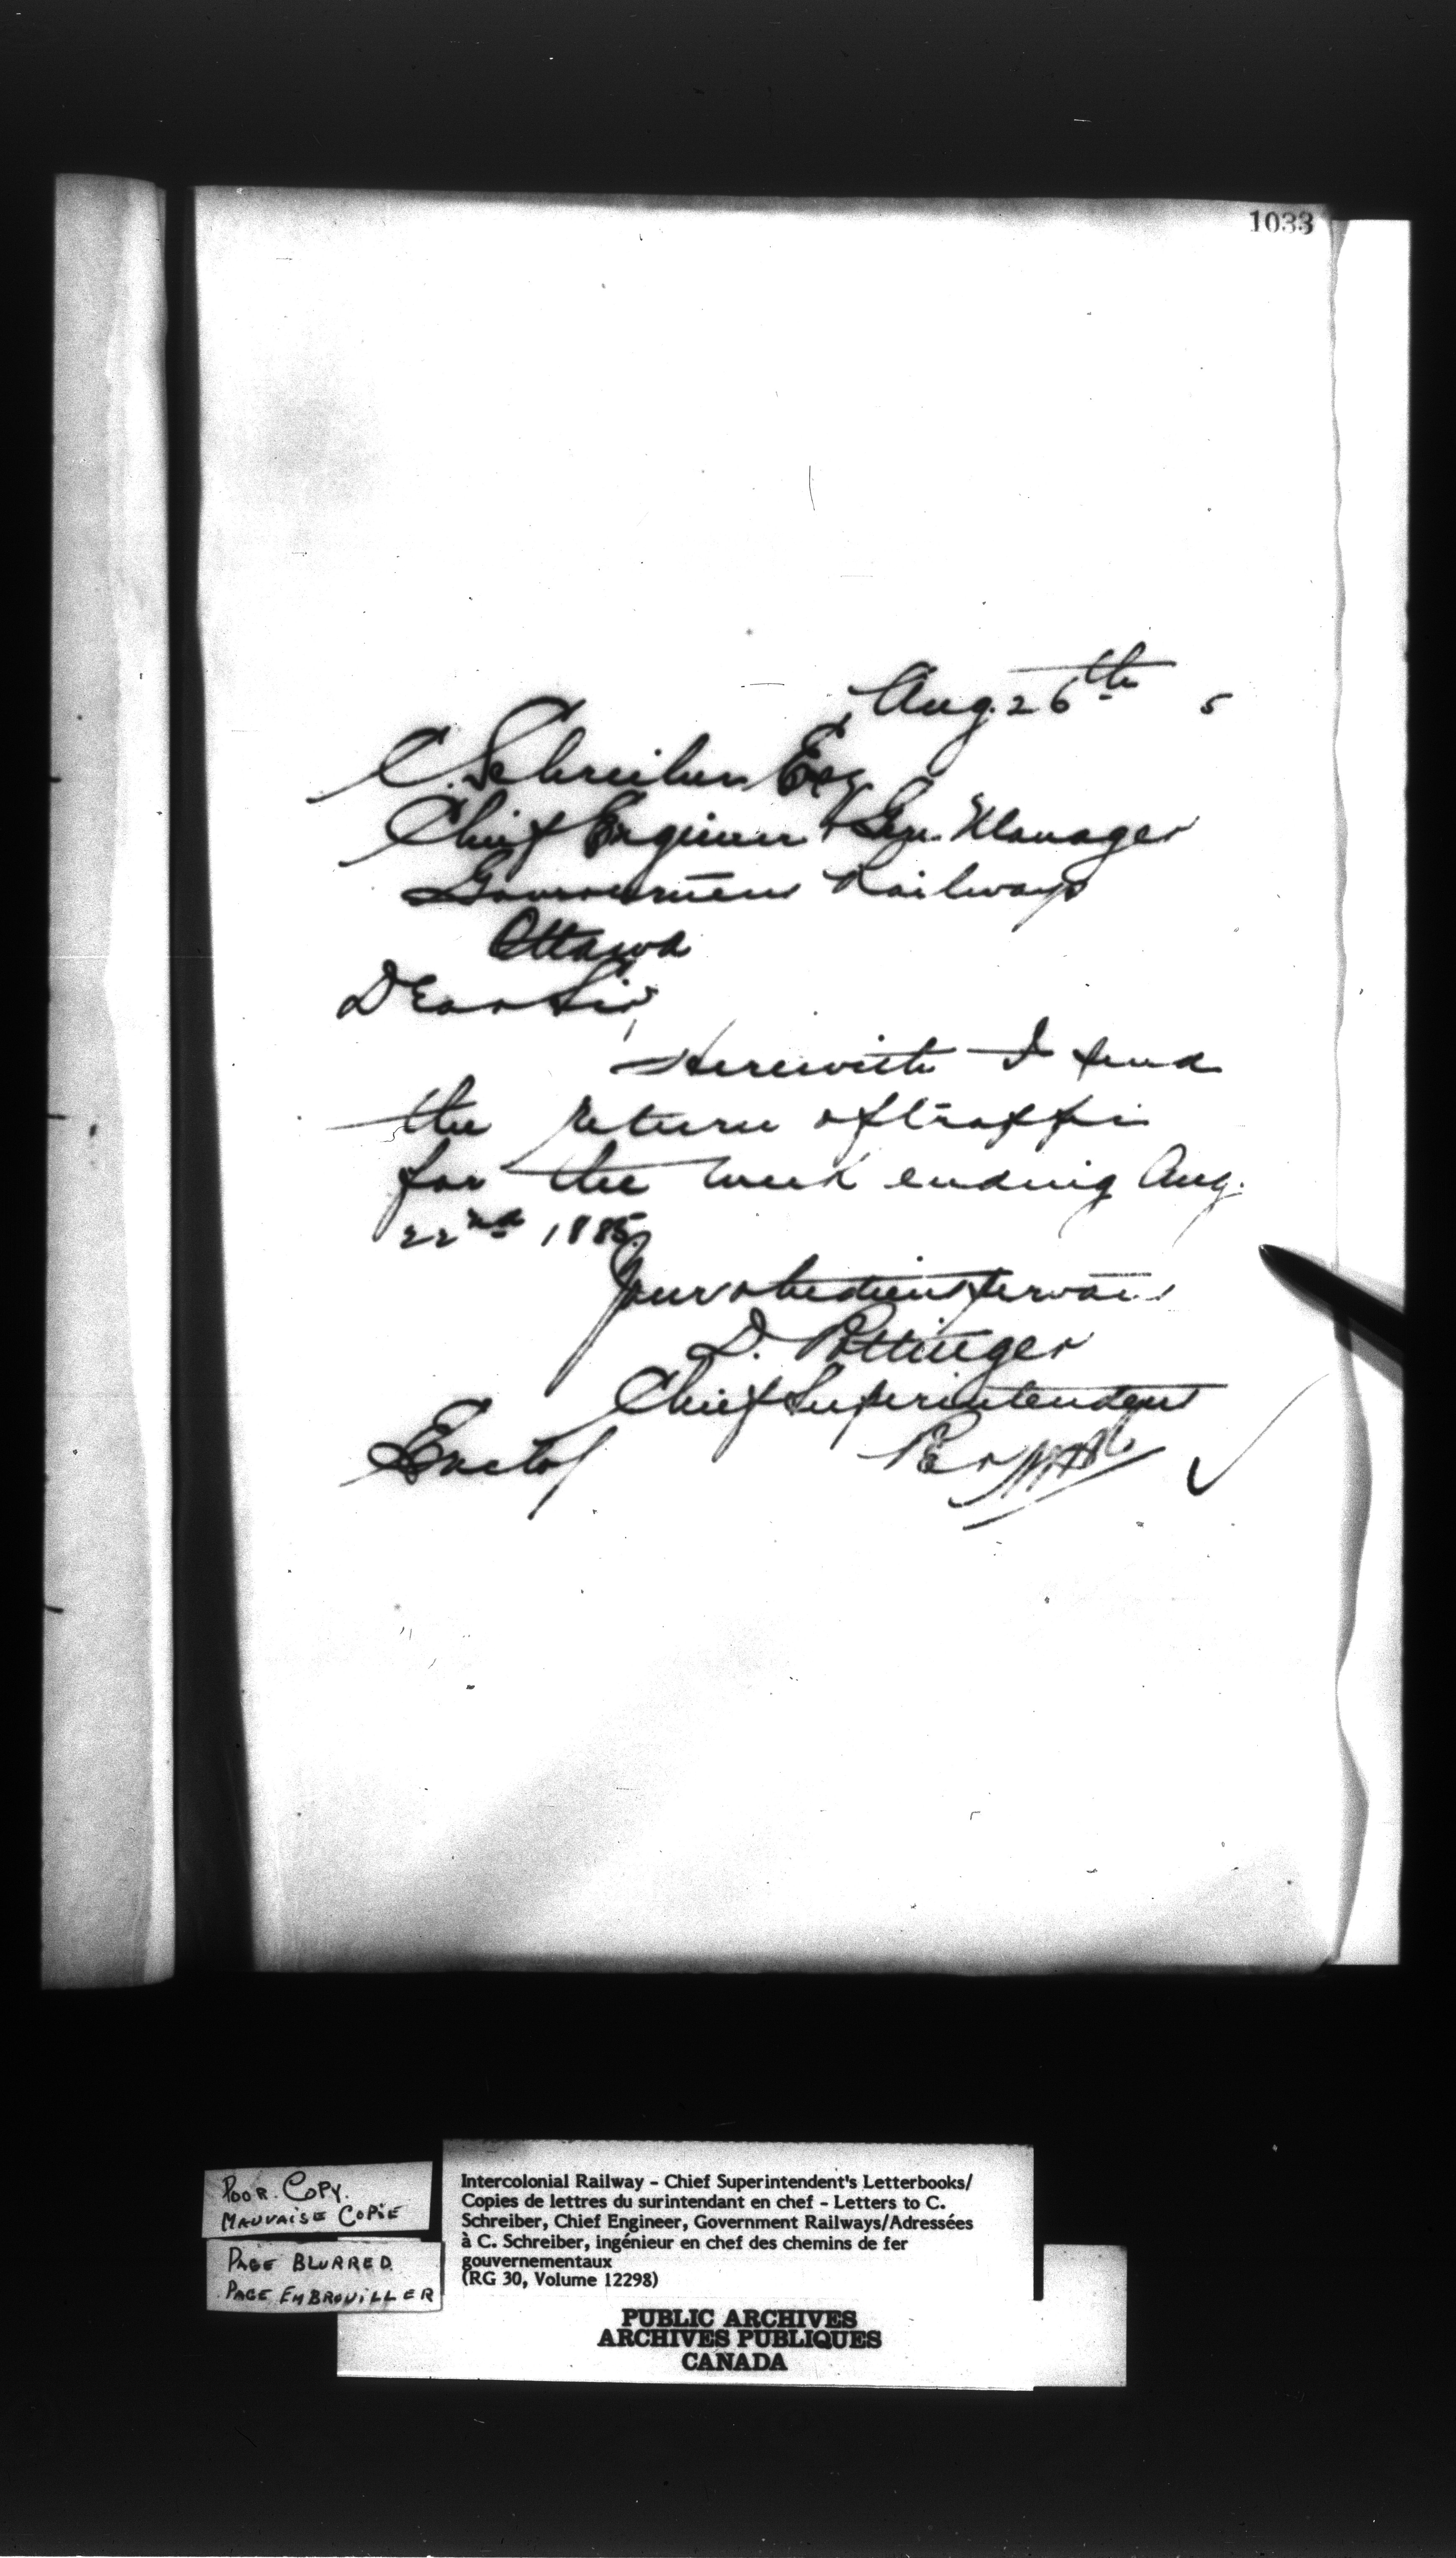 1033
Aug. 26th 5
C. Schreiber Esq
Chief Engineer & Gen. Manager
Government Railways
Ottawa
Dear Sir,
Herewith I send
the return of traffic
for the week ending Aug.
22nd 1885.
Your obedient servant
D. Pottinger
Chief Superintendent
Per
POOR. COPY.
MAUVAISE COPIE
PAGE BLURRED.
PAGE EMBROUILLER
Intercolonial Railway - Chief Superintendent's Letterbooks/
Copies de lettres du surintendant en chef - Letters to C.
Schreiber, Chief Engineer, Government Railways/Adressées
à C. Schreiber, ingénieur en chef des chemins de fer
gouvernementaux
(RG 30, Volume 12298)
PUBLIC ARCHIVES
ARCHIVES PUBLIQUES
CANADA